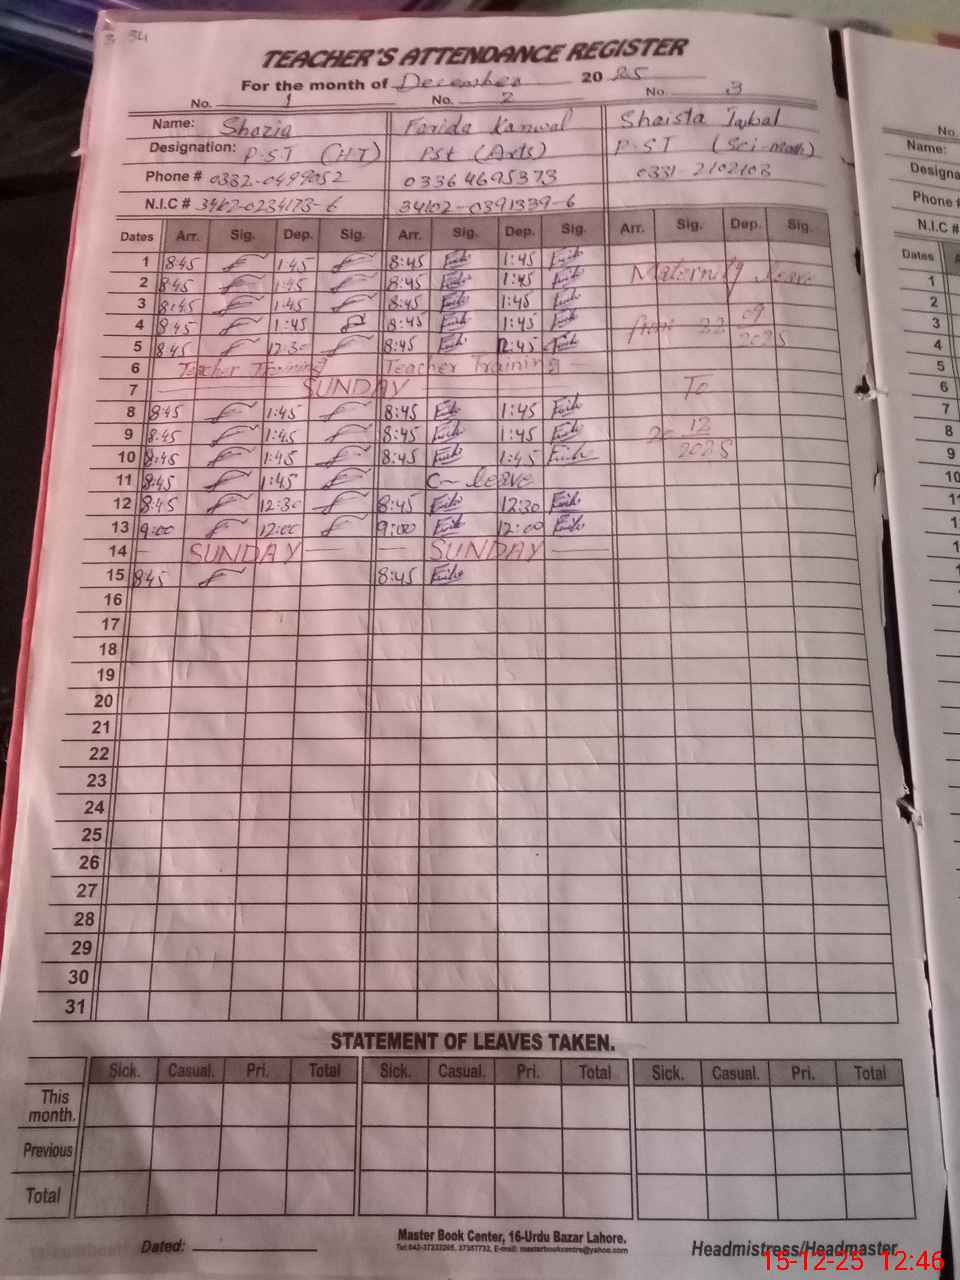 3 34
TEACHER'S ATTENDANCE REGISTER
For the month of December 2025
No. 1 No. 2 No. 3
Name: Shazia Farida Kanwal Shaista Iqbal
Designation: P.S.T (HT) Pst (Arts) P.S.T (Sci-math)
Phone # 0332-0499052 03364695373 0331-2102103
N.I.C # 34102-0234173-6 34102-0391339-6
Dates Arr. Sig. Dep. Sig. Arr. Sig. Dep. Sig. Arr. Sig. Dep. Sig.
1 8:45 1:45 8:45 1:45
2 8:45 1:45 8:45 1:45 Maternity leave
3 8:45 1:45 8:45 1:45
4 8:45 1:45 8:45 1:45 09
5 8:45 12:30 8:45 12:45 2025
6 Teacher Training Teacher Training
7 SUNDAY To
8 8:45 1:45 8:45 1:45
9 8:45 1:45 8:45 1:45 12
10 8:45 1:45 8:45 1:45 2025
11 8:45 1:45 C- leave
12 8:45 12:30 8:45 12:30
13 9:00 12:00 9:00 12:00
14 SUNDAY SUNDAY
15 8:45 8:45
16
17
18
19
20
21
22
23
24
25
26
27
28
29
30
31
STATEMENT OF LEAVES TAKEN.
Sick. Casual. Pri. Total Sick. Casual. Pri. Total Sick. Casual. Pri. Total
This month.
Previous
Total
Master Book Center, 16-Urdu Bazar Lahore.
Dated: Headmistress/Headmaster
No.
Name:
Designa
Phone #
N.I.C #
Dates
1
2
3
4
5
6
7
8
9
10
15-12-25 12:46